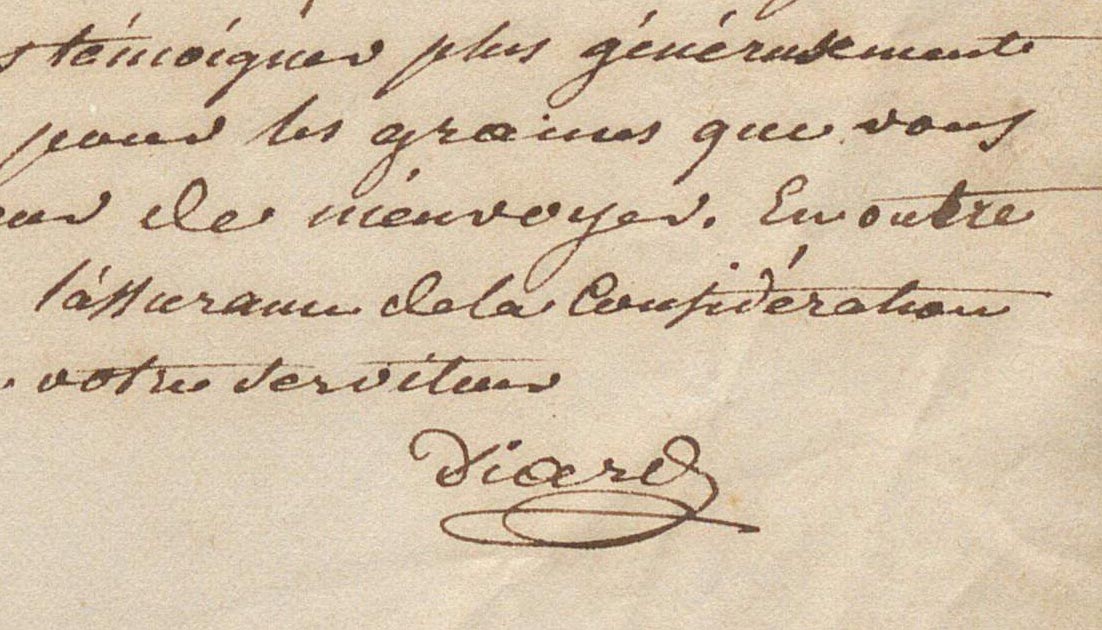 témoigner plus générusemente
pour les graines que vous
de m'envoyer. En outre
l'assurance de la Considération
votre serviteur
Diard